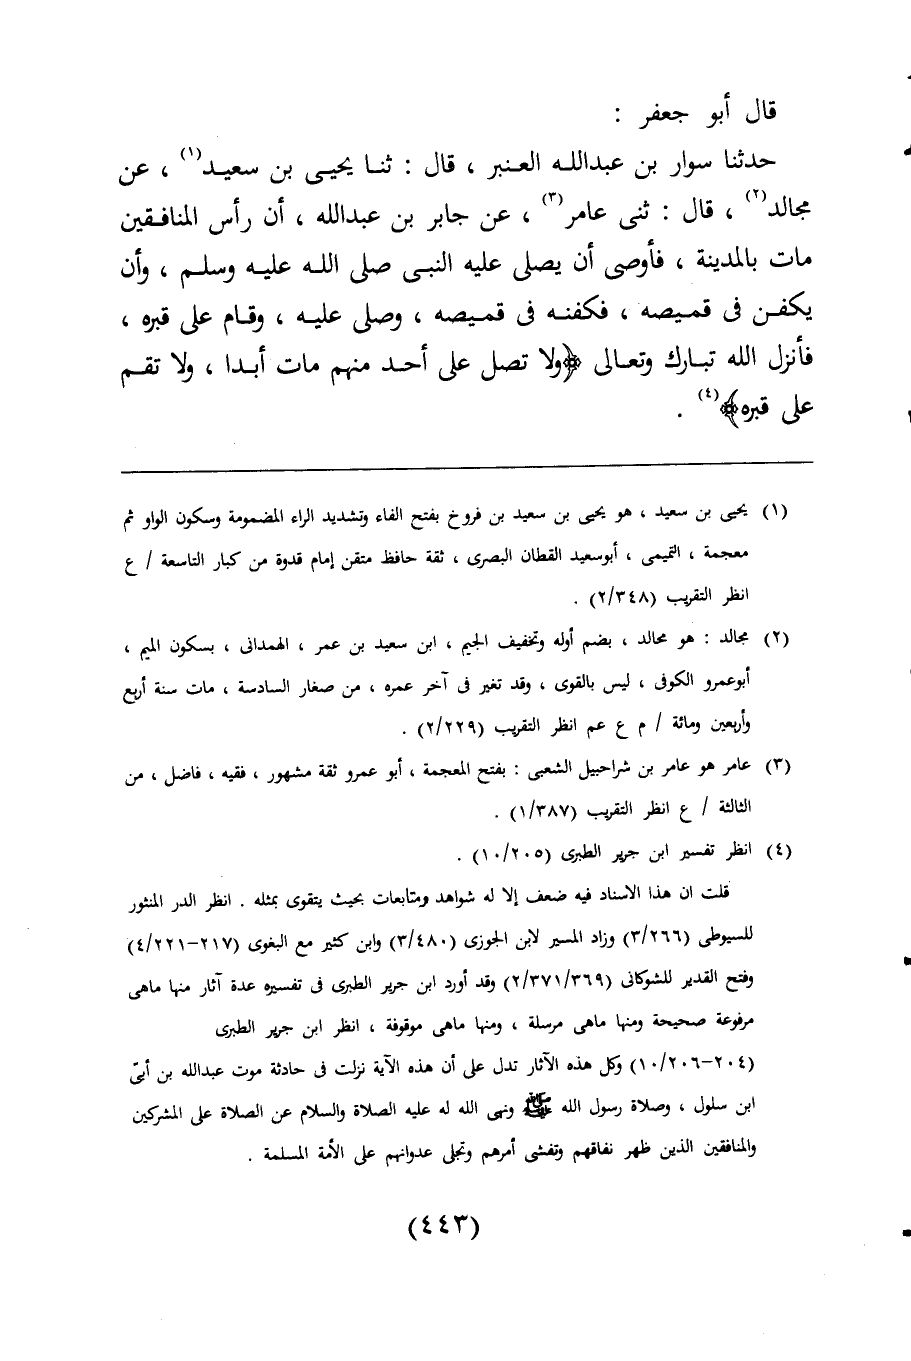 قال أبو جعفر :
حدثنا سوار بن عبدالله العنبر ، قال : ثنا يحيى بن سعيد(١) ، عن
مجالد(٢) ، قال : ثنى عامر(٣) ، عن جابر بن عبدالله ، أن رأس المنافقين
مات بالمدينة ، فأوصى أن يصلى عليه النبى صلى الله عليه وسلم ، وأن
يكفن فى قميصه ، فكفنه فى قميصه ، وصلى عليه ، وقام على قبره ،
فأنزل الله تبارك وتعالى ﴿ولا تصل على أحد منهم مات أبدا ، ولا تقم
على قبره﴾(٤) .
(١) يحيى بن سعيد ، هو يحيى بن سعيد بن فروخ بفتح الفاء وتشديد الراء المضمومة وسكون الواو ثم
معجمة ، التميمى ، أبوسعيد القطان البصرى ، ثقة حافظ متقن إمام قدوة من كبار التاسعة / ع
انظر التقريب (٢/٣٤٨) .
(٢) مجالد : هو مجالد ، بضم أوله وتخفيف الجيم ، ابن سعيد بن عمر ، الهمدانى ، بسكون الميم ،
أبوعمرو الكوفى ، ليس بالقوى ، وقد تغير فى آخر عمره ، من صغار السادسة ، مات سنة أربع
وأربعين ومائة / م ع عم انظر التقريب (٢/٢٢٩) .
(٣) عامر هو عامر بن شراحبيل الشعبى : بفتح المعجمة ، أبو عمرو ثقة مشهور ، فقيه ، فاضل ، من
الثالثة / ع انظر التقريب (١/٣٨٧) .
(٤) انظر تفسير ابن جرير الطبرى (١٠/٢٠٥) .
قلت ان هذا الاسناد فيه ضعف إلا له شواهد ومتابعات بحيث يتقوى بمثله . انظر الدر المنثور
للسيوطى (٣/٢٦٦) وزاد المسير لابن الجوزى (٣/٤٨٠) وابن كثير مع البغوى (٢١٧-٤/٢٢١)
وفتح القدير للشوكانى (٢/٣٧١/٣٦٩) وقد أورد ابن جرير الطبرى فى تفسيره عدة آثار منها ماهى
مرفوعة صحيحة ومنها ماهى مرسلة ، ومنها ماهى موقوفة ، انظر ابن جرير الطبرى
(٢٠٤-١٠/٢٠٦) وكل هذه الآثار تدل على أن هذه الآية نزلت فى حادثة موت عبدالله بن أبىّ
ابن سلول ، وصلاة رسول الله ﷺ ونهى الله له عليه الصلاة والسلام عن الصلاة على المشركين
والمنافقين الذين ظهر نفاقهم وتفشى أمرهم وتجلى عدوانهم على الأمة المسلمة .
(٤٤٣)